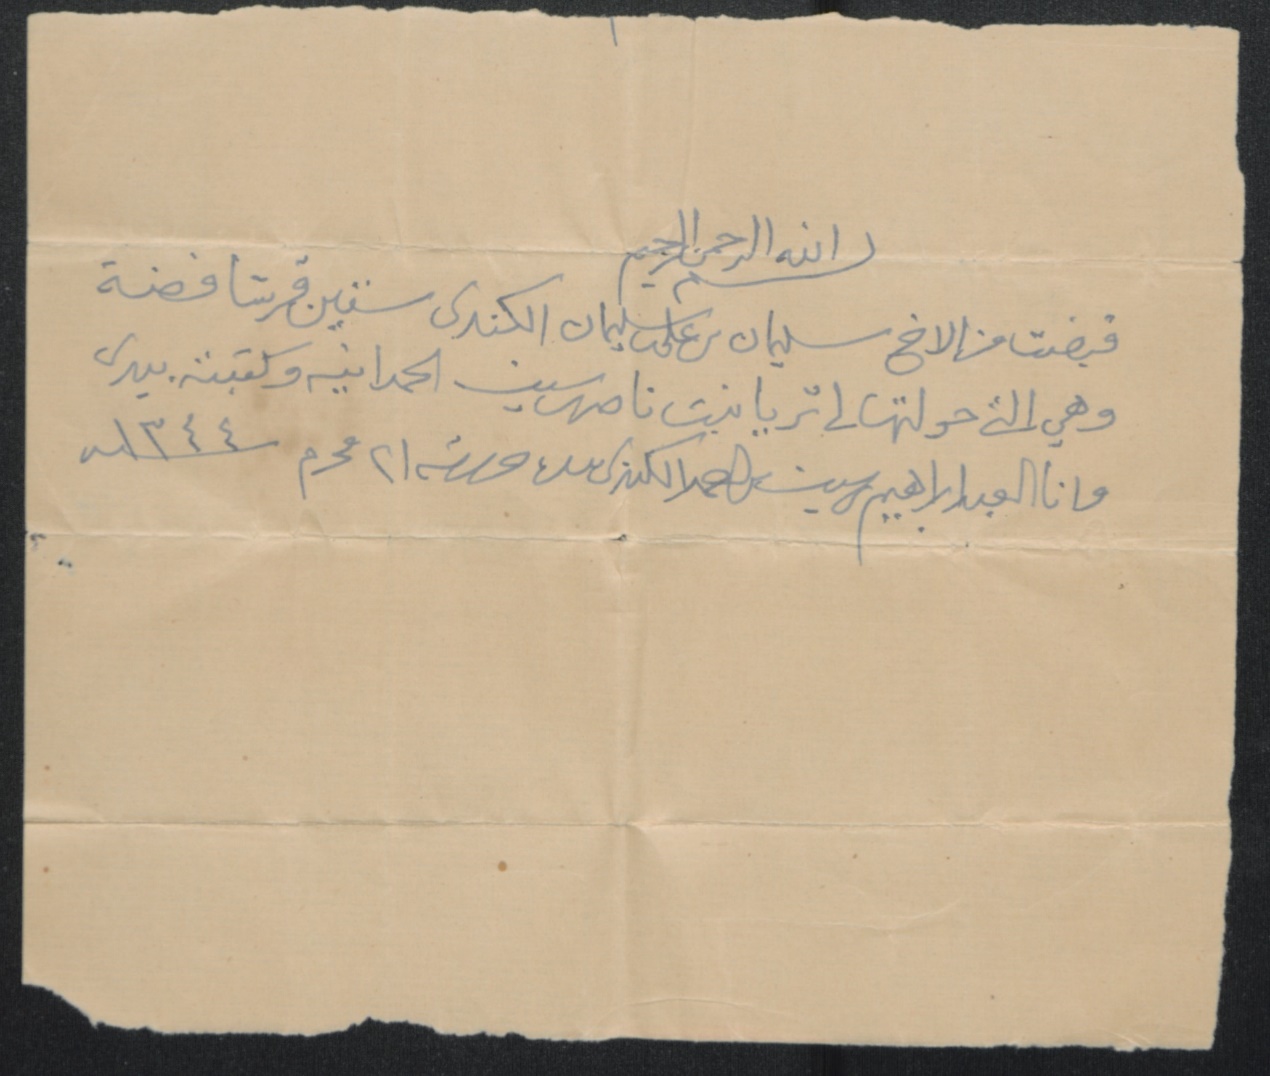 بسم الله الرحمن الرحيم
قبضت من الاخ سليمان بن علي بن سليمان الكندي ستين قرشا فضة
وهي التي حولتها لي ثريا بنت ناصر بن سيف الحمدانيه وكتبته بيدي
وانا العبد ابراهيم بن سيف بن احمد الكندي ٢١ محرم سنة ١٣٤٤